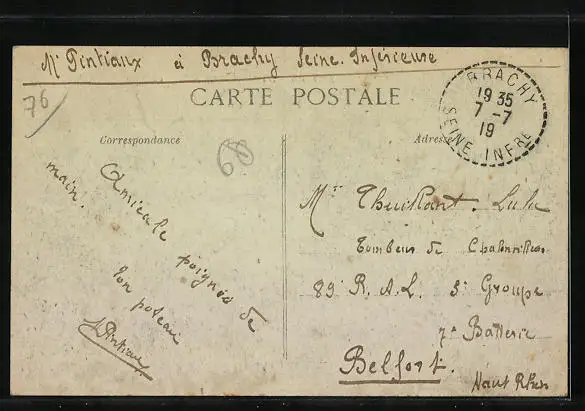 Mr Pintiaux à Brachy Seine-Inférieure
76
CARTE POSTALE
BRACHY
19 35
7 -7
19
SEINE INFRE
Correspondance
68
Adresse
Amicale poignée de
main.
Ton poteau
Pintiaux
Mr Thuillant. Lulu
Tombeur de
89 R. A. L. 3e Groupe
7e Batterie
Belfort.
Haut Rhin